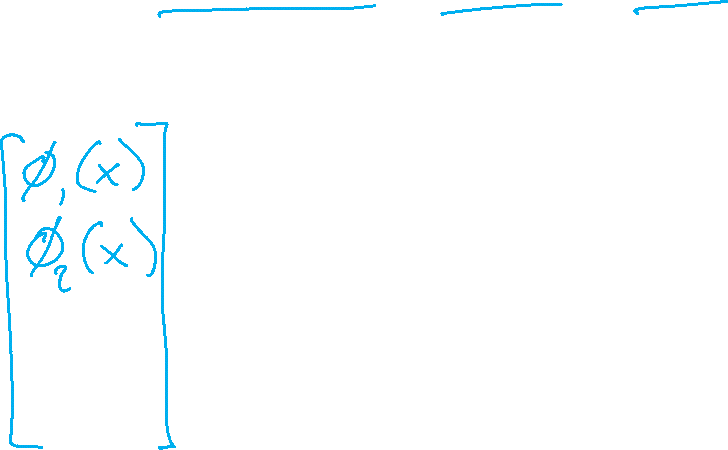 ϕ₁(x)
ϕ₂(x)